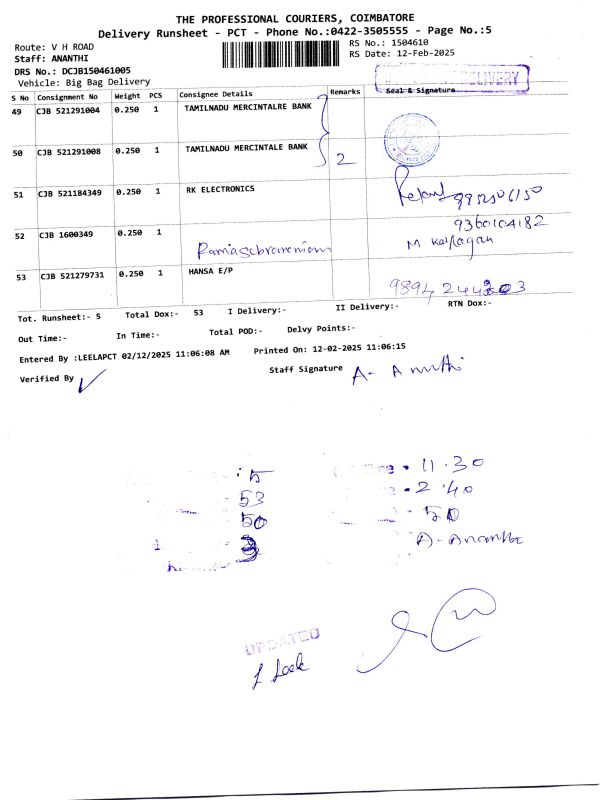 THE PROFESSIONAL COURIERS, COIMBATORE
Delivery Runsheet - PCT - Phone No.:0422-3505555 - Page No.:5
Route: V H ROAD
RS No.: 1504610
Staff: ANANTHI
RS Date: 12-Feb-2025
DRS No.: DCJB150461005
Vehicle: Big Bag Delivery
DELIVERY
S No Consignment No Weight PCS Consignee Details Remarks Seal & Signature
49 CJB 521291004 0.250 1 TAMILNADU MERCINTALRE BANK
50 CJB 521291008 0.250 1 TAMILNADU MERCINTALE BANK 2
51 CJB 521184349 0.250 1 RK ELECTRONICS
52 CJB 1600349 0.250 1 Ramasubramaniam 9360104182
53 CJB 521279731 0.250 1 HANSA E/P 9894 244203
Tot. Runsheet:- 5 Total Dox:- 53 I Delivery:- II Delivery:- RTN Dox:-
Out Time:- In Time:- Total POD:- Delvy Points:-
Entered By :LEELAPCT 02/12/2025 11:06:08 AM Printed On: 12-02-2025 11:06:15
Verified By Staff Signature A- Ananthi
: 5 Time • 11.30
53 • 2.40
50 50
3 A- Ananthi
UPDATED